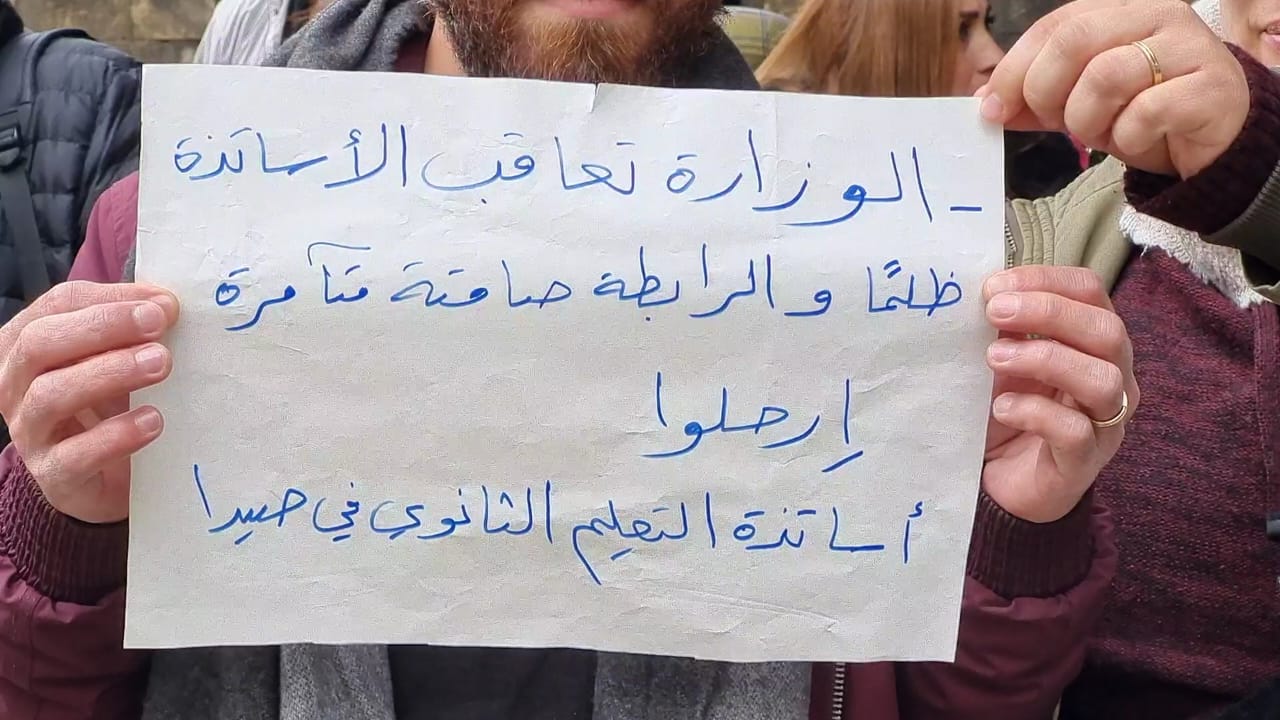 - الوزارة تعاقب الأساتذة
ظلمًا والرابطة صامتة متآمرة
إرحلوا
أساتذة التعليم الثانوي في صيدا